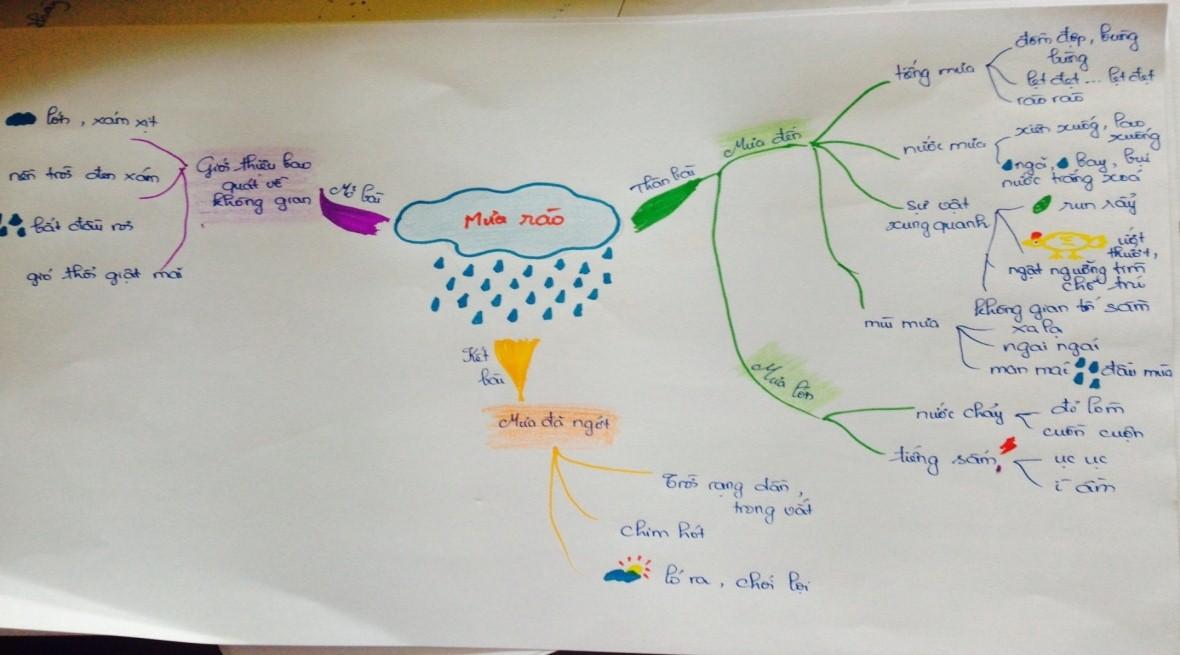 Mưa rào
Mở bài
Giới thiệu bao
quát về
không gian
lớn, xám xịt
nền trời đen xám
bắt đầu rơi
gió thổi giật mãi
Thân bài
Mưa đến
tiếng mưa
đồm độp, bùng
bùng
lẹt đẹt ... lẹt đẹt
rào rào
nước mưa
xiên xuống, lao
xuống
ngả, bay, bụi
nước trắng xoá
sự vật
xung quanh
run rẩy
ướt
thướt,
ngật ngưỡng tìm
chỗ trú
không gian tối sầm
mùi mưa
xa lạ
ngai ngái
man mác đầu mùa
Mưa lớn
nước chảy
đỏ lòm
cuồn cuộn
tiếng sấm
ục ục
ì ầm
Kết
bài
Mưa đã ngớt
Trời rạng dần,
trong vắt
chim hót
ló ra, chói lọi